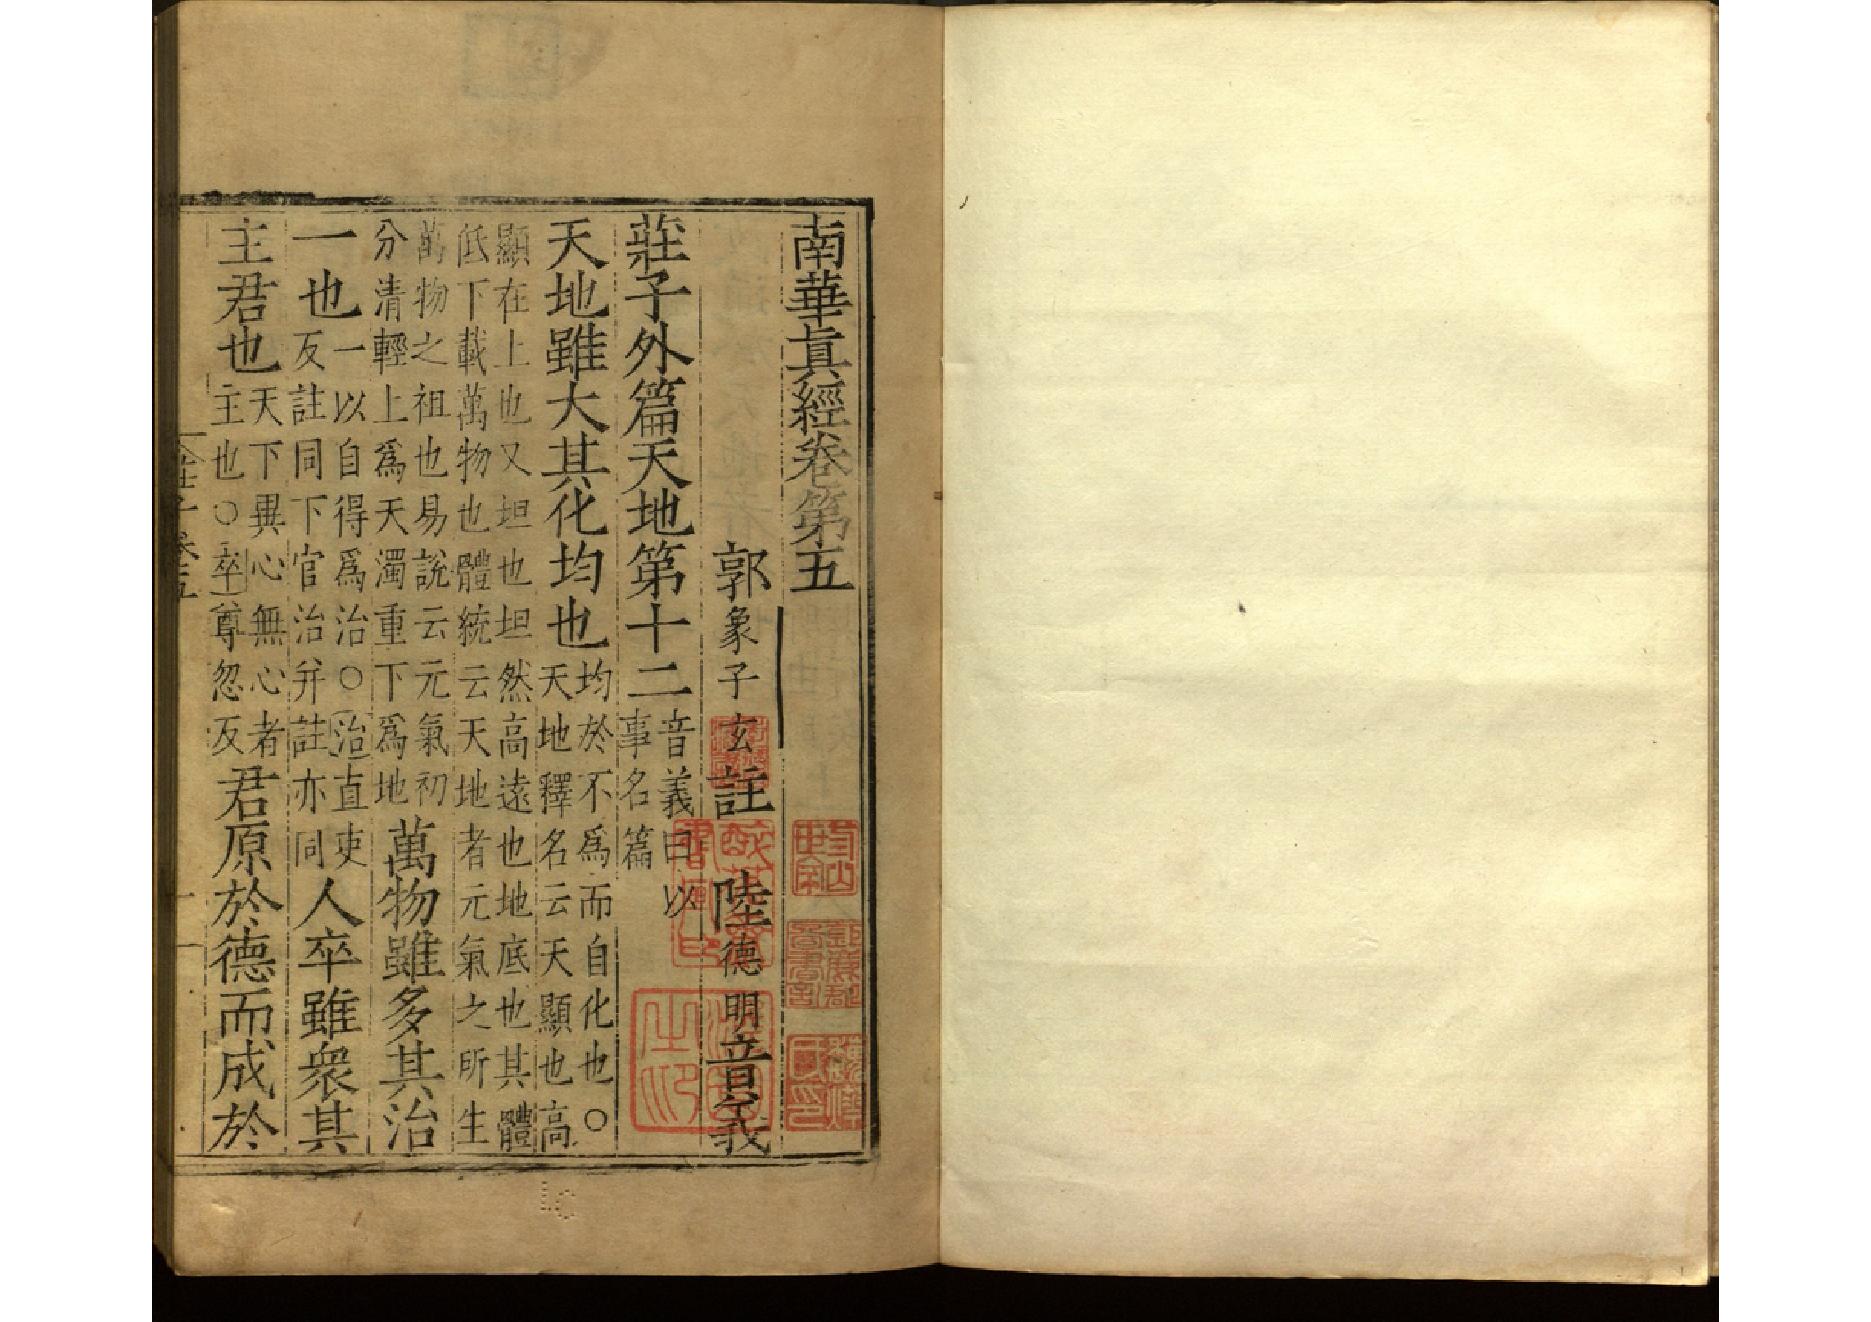 南華眞經卷第五
郭象子玄註 陸德明音義
莊子外篇天地第十二 音義曰以事名篇
天地雖大其化均也 均於不爲而自化也○天地釋名云天顯也高
顯在上也又坦也坦然高遠也地底也其體低下載萬物也體統云天地者元氣之所生
萬物之祖也易說云元氣初分清輕上爲天濁重下爲地 萬物雖多其治
一也 一以自得爲治○治直吏反註同下官治并註亦同 人卒雖衆其
主君也 天下異心無心者主也○卒尊忽反 君原於德而成於
莊子卷五
一